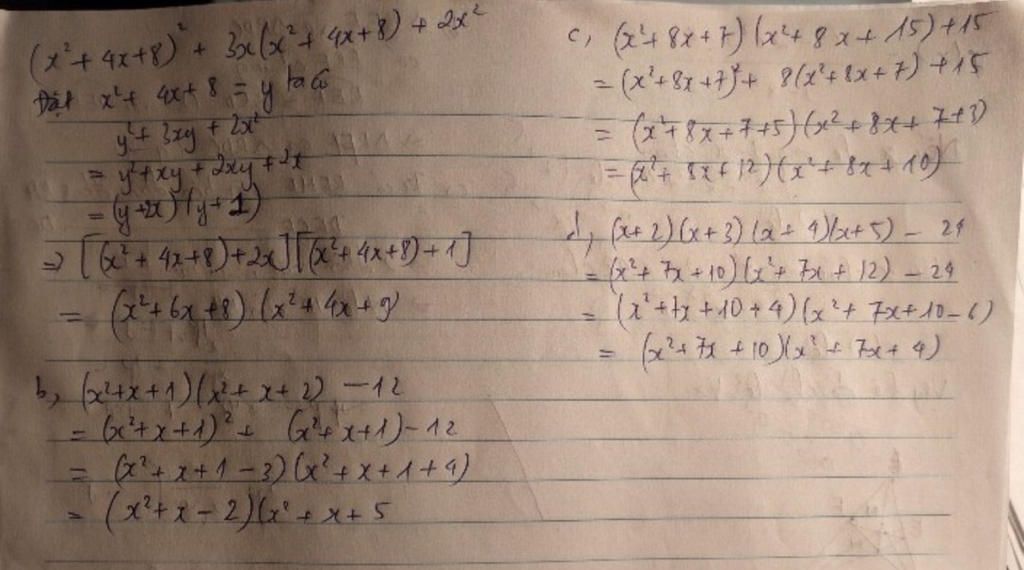 (x² + 4x + 8)² + 3x(x² + 4x + 8) + 2x²
Đặt x² + 4x + 8 = y ta có
y² + 3xy + 2x²
= y² + xy + 2xy + 2x
= (y + 2x) (y + 1)
⇒ [(x² + 4x + 8) + 2x] [(x² + 4x + 8) + 1]
= (x² + 6x + 8) (x² + 4x + 9)
b, (x² + x + 1) (x² + x + 2) - 12
= (x² + x + 1)² + (x² + x + 1) - 12
= (x² + x + 1 - 3) (x² + x + 1 + 4)
= (x² + x - 2) (x² + x + 5
c, (x² + 8x + 7) (x² + 8x + 15) + 15
= (x² + 8x + 7)² + 8(x² + 8x + 7) + 15
= (x² + 8x + 7 + 5) (x² + 8x + 7 + 3)
= (x² + 8x + 12) (x² + 8x + 10)
d, (x + 2) (x + 3) (x + 4) (x + 5) - 24
= (x² + 7x + 10) (x² + 7x + 12) - 24
= (x² + 7x + 10 + 4) (x² + 7x + 10 - 6)
= (x² + 7x + 10) (x² + 7x + 4)